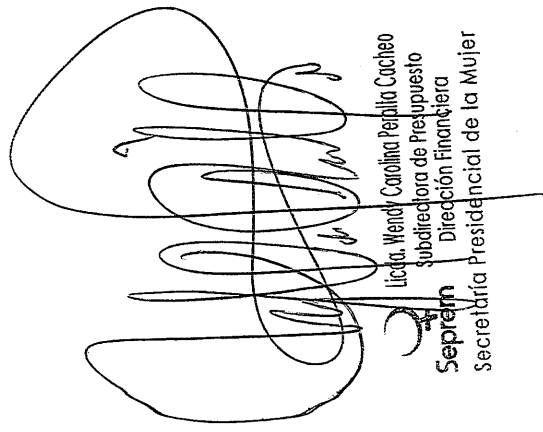 Licda. Wendy Carolina Peralta Cacheo
Subdirectora de Presupuesto
Dirección Financiera
Seprem
Secretaría Presidencial de la Mujer